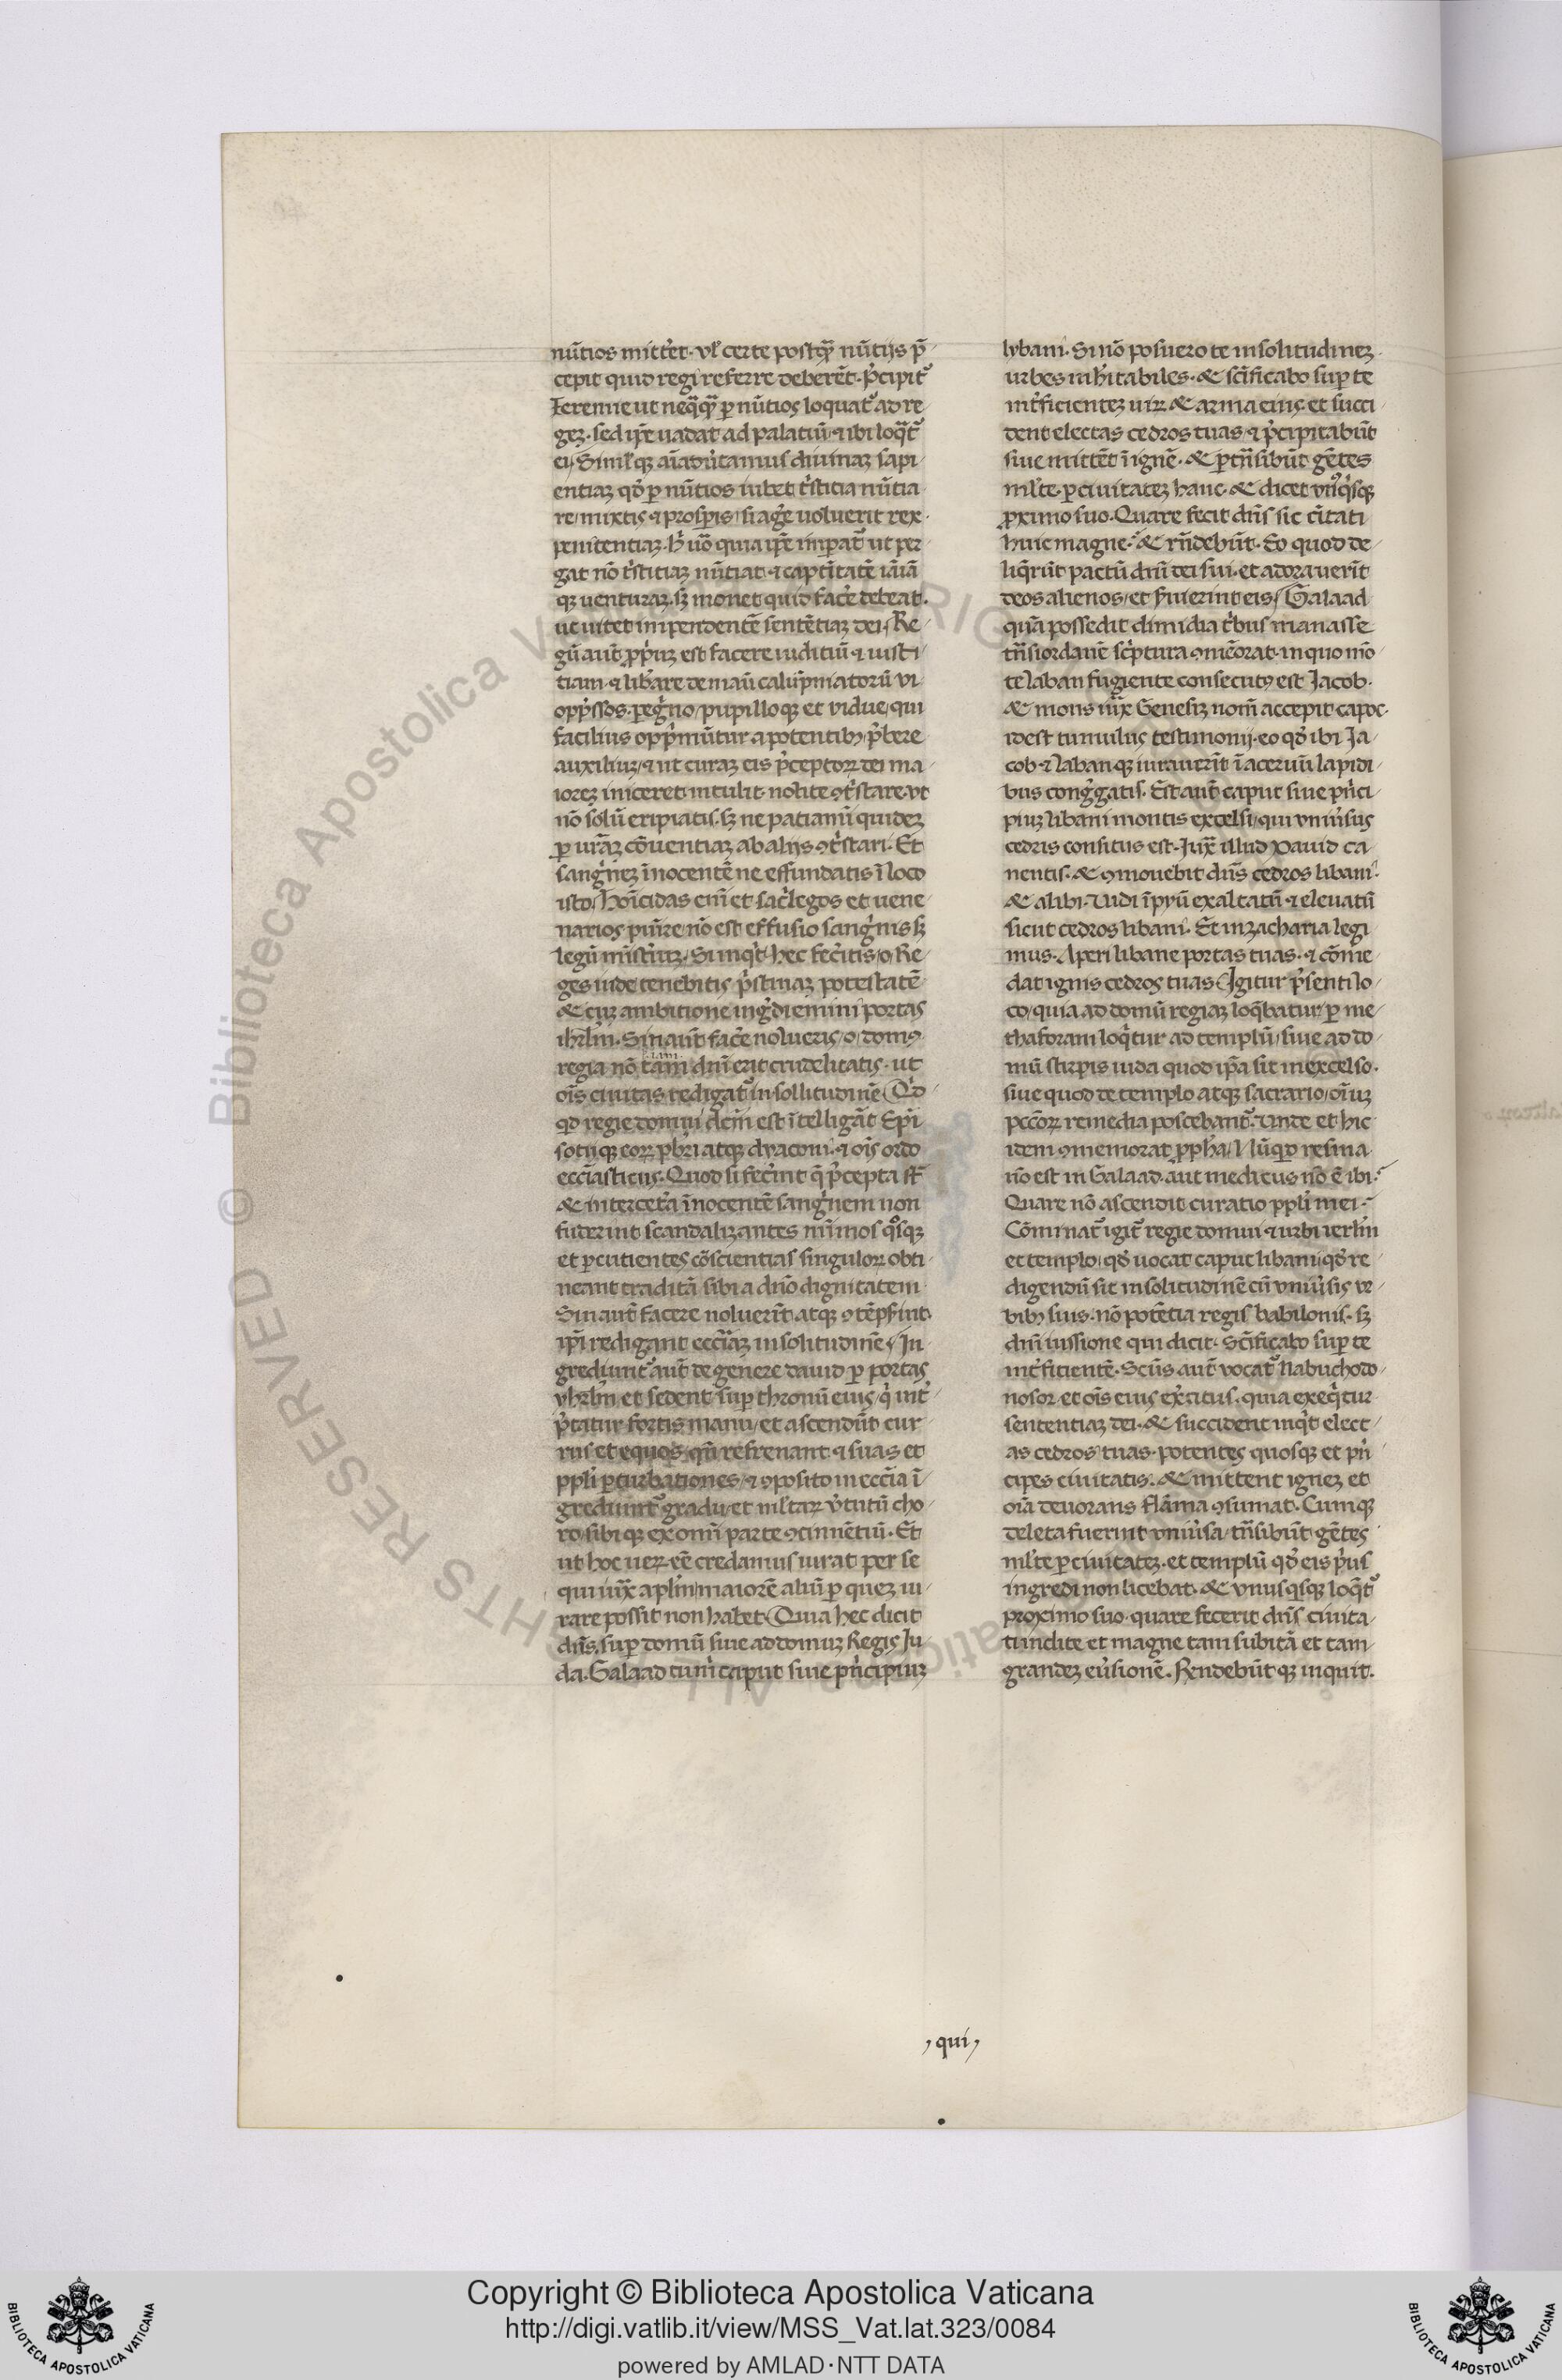 nũtios mittet̉. vl̉ certe postq̃ȝ nũtijs p̃
cepit quid regi referre deberẽt. p̉cipit᷑
Ieremie ut neq̃q̃ȝ ꝑ nũtios loquat᷑ ad re
geȝ. sed ip̃e uadat ad palatiũ ⁊ ibi loq̃t᷑
ei. Simĺꝙ aĩad̉utamus diuinaȝ sapi
entiaȝ qd̉ ꝑ nũtios iubet t̉stitia nũtia
re mixtis ⁊ prosꝑis si ag̉e uoluerit rex
penitentiaȝ. h̉ uõ quia ip̃e imꝑat᷑ ut per
gat nõ t̉stitiaȝ nũtiat ⁊ captĩtatẽ iãiã
qȝ uenturaȝ. sȝ monet quid fac̉e debeat.
ut uitet inpendentẽ sentẽtiaȝ dei. Re
gũ aut̃ ꝓp̉uȝ est facere iuditiũ ⁊ iusti
tiam ⁊ lib̉are de manũ calũpniatorũ vi
opp̉ssos. ꝑeg̉no pupilloqȝ et vidue, qui
facilius opp̉mũtur a potentibꝰ p̉bere
auxiliuȝ, ⁊ ut curaȝ eis p̉ceptoꝝ dei ma
ioreȝ iniceret intulit nolite ꝯt̉stare. vt
nõ solũ eripiatis. sȝ ne patiamĩ quideȝ
ꝑ ur̃aȝ cõuentiaȝ ab alijs ꝯt̉stari. Et
sang̉neȝ ĩnocentẽ ne effundatis ĩ loco
isto. Hoĩcidas eni᷑ et sac̉legos et uene
narios punire nõ est effusio sang̉nis sȝ
legũ minist̉iuȝ. Si inq̉t hec fec̉itis o Re
ges iude tenebitis p̉stinaȝ potestatẽ
& cuȝ ambitione ing̉diemini portas
ihrl̃m. Sin aut̃ fac̉e nolueris, o domꝰ
regia nõ tam dñi erit crudelitatis. ut
oĩs ciuitas redigat᷑ in sollitudinẽ Qd̉
qd̉ regie domui dc̃m est ĩtelligãt Ep̃i
sotijqȝ eoꝝ pb̃ri atqȝ dyaconi. ⁊ oĩs ordo
ecc̃iasticus. Quod si fec̉int q̃ p̉cepta sũt
& inter cet̉a ĩnocentẽ sang̉nem non
fuderint scandalizantes minimos qͦsqȝ
et ꝑcutientes cõscientias singuloꝝ obti
neant traditã sibi a dño dignitatem
Sin aut̃ facere noluerĩt atqȝ ꝯtẽpserint
ip̃i redigant ecc̃iaȝ in solitudinẽ. In
grediunt᷑ aut̃ de genere dauid ꝑ portas
yhrl̃m et sedent suꝑ thronũ eius, q̉ int̉
p̉tatur fortis manu, et ascendũt cur
rus et equos, qñ refrenant ⁊ suas et
ppl̉i ꝑturbationes, ⁊ ꝯposito in ecc̃ia ĩ
grediunt᷑ gradu, et militaꝝ v̉tutũ cho
ro, sibi qȝ ex omi᷑ parte ꝯcinnẽtiũ. Et
ut hoc ueꝝ ẽe credamus iurat per se
qui iux̃ apl̃m maiorẽ aliũ ꝑ queȝ iu
rare possit non habet Quia hec dicit
dñs suꝑ domũ siue ad domuȝ Regis Iu
da. Galaad tu m̉ caput siue pñcipiuȝ
lybani. Si nõ posuero te in solitudineȝ
urbes inhĩtabiles. & scĩficabo suꝑ te
int̉ficienteȝ uiꝝ & arma eius et succi
dent electas cedros tuas. ⁊ p̉cipitabũt
siue mittẽt ĩ ignẽ. & ꝑtñsibũt gẽtes
ml̉te. ꝑ ciuitateȝ hanc. & dicet vnꝰq̉sqȝ
ꝓximo suo. Quare fecit dñs sic cĩtati
huic magne. & rñdebũt. Eo quod de
liq̉rũt pactũ dñi dei sui. et adorauerĩt
deos alienos, et s̉uierint eis. Galaad
quã possedit dimidia t̉bus manasse
tñs iordanẽ sc̉ptura ꝯmẽorat. in quo mõ
te laban fugiente consecutꝰ est Jacob.
& mons iux̃ Genesiȝ nom̃ accepit capoc.
idest tumulus testimonij. eo qd̉ ibi Ja
cob ⁊ labanqȝ iurauerĩt ĩ aceruũ lapidi
bus cong̉gatis. Est aut̃ caput siue p̉nci
piuȝ libani montis excelsi, qui vniu̾sus
cedris consitus est. Jux̃ illud Dauid ca
nentis. & ꝯmouebit dñs cedros libani.
& alibi. Vidi ĩpiũ exaltatũ ⁊ eleuatũ
sicut cedros libani. Et in zacharia legi
mus. Aperi libane portas tuas. ⁊ cõme
dat ignis cedros tuas. Igitur p̉senti lo
co, quia ad domũ regiaȝ loq̃batur, ꝑ me
thaforam loq̉tur ad templũ, siue ad do
mũ stirpis iuda quod ip̃a sit in excelso.
siue quod de templo atqȝ sacrario, oĩuȝ
pcc̃oꝝ remedia poscebant᷑. Vnde et hic
idem ꝯmemorat ꝓph̃a, Nũqd̉ resina
nõ est in Galaad. aut medicus nõ ẽ ibi.
Quare nõ ascendit curatio ppl̉i mei.
Cõminat᷑ igit᷑ regie domui ⁊ urbi ierl̃m
et templo, qd̉ uocat caput libani, qd̉ re
digendũ sit in solitudinẽ cũ vniu̾sis ur
bibꝰ suis. nõ potẽtia regis babilonis. sȝ
dñi iussione qui dicit. Scĩficabo suꝑ te
int̉ficientẽ. Scũs aut̃ vocat᷑ Nabuchodo
nosor et oĩs eius ex̉citus. quia exeq̉tur
sententiaȝ dei. & succident inq̉t elect
as cedros tuas. potentes quosqȝ et pñ
cipes ciuitatis. & mittent igneȝ et
oĩa deuorans flãma ꝯsumat. Cumqȝ
deleta fuerint vniu̾sa, tñsibũt gẽtes
ml̉te ꝑ ciuitateȝ. et templũ qd̉ eis p̉us
ingredi non licebat. & vnusq̉sqȝ loq̃t᷑
proximo suo. quare fecerit dñs ciuita
ti indite et magne tam subitã et tam
grandeȝ eu̾sionẽ. Rendebũt qȝ inquit.
, qui ,
Copyright © Biblioteca Apostolica Vaticana
http://digi.vatlib.it/view/MSS_Vat.lat.323/0084
powered by AMLAD·NTT DATA
BIBLIOTECA APOSTOLICA VATICANA
BIBLIOTECA APOSTOLICA VATICANA